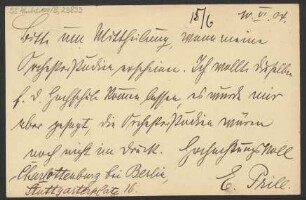 15/6 10. VI. 04.
Bitte um Mittheilung, wann meine
Orchesterstudien erscheinen. Ich wollte dieselben
f. d. Hochschule kommen lassen, es wurde mir
aber gesagt, die Orchesterstudien wären
noch nicht im Druck. Hochachtungsvoll
Charlottenburg bei Berlin, E. Prill.
Stuttgarterplatz 16.